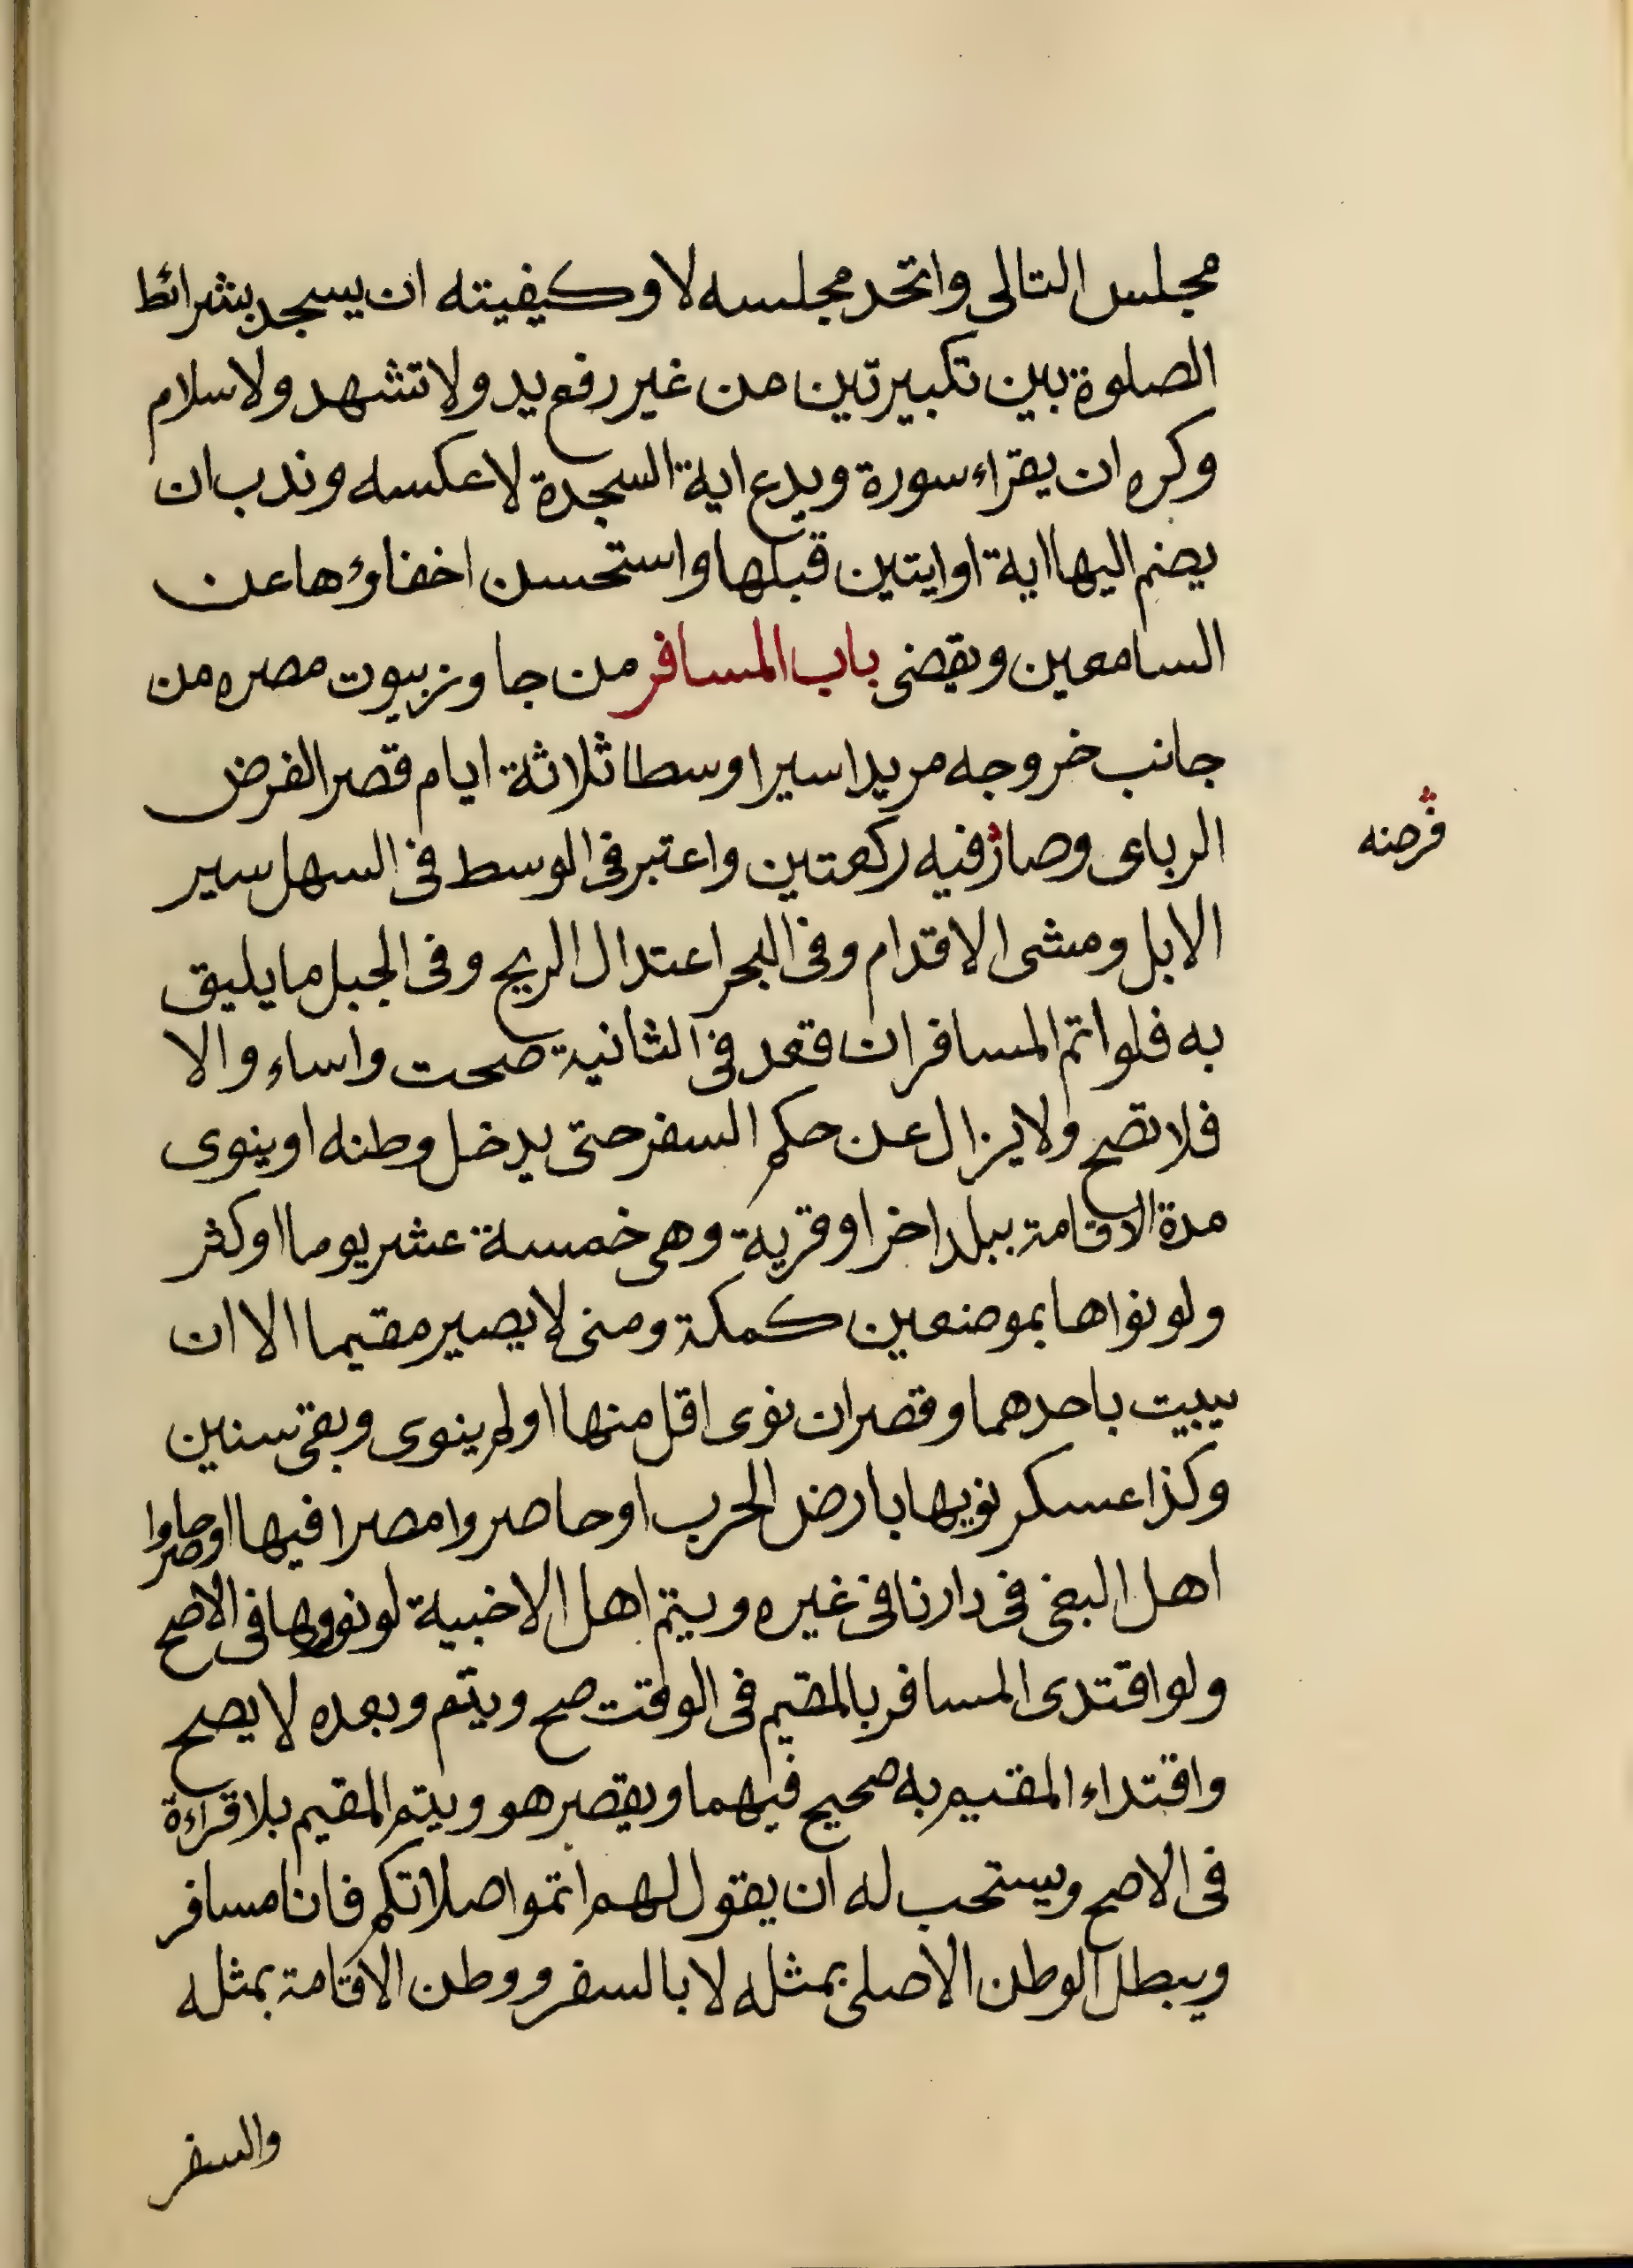 مجلس التالى واتحد مجلسه لا وكيفيته ان يسجد بشرائط
الصلوة بين تكبيرتين من غير رفع يد ولا تشهد ولا سلام
وكره ان يقراء سورة ويدع اية السجدة لا عكسه وندب ان
يضم اليها اية او ايتين قبلها واستحسن اخفاؤها عن
السامعين ويقضى باب المسافر من جاوز بيوت مصره من
جانب خروجه مريدا سيرا وسطا ثلاثة ايام قصر الفرض
الرباعى وصار فيه ركعتين واعتبر فى الوسط فى السهل سير
فرضه
الابل ومشى الاقدام وفى البحر اعتدال الريح وفى الجبل ما يليق
به فلو اتم المسافر ان قعد فى الثانية صحت واساء والا
فلا تصح ولا يزال عن حكم السفر حتى يدخل وطنه او ينوى
مدة الاقامة ببلد اخر او قرية وهى خمسة عشر يوما او كثر
ولو نواها بموضعين كمكة ومنى لا يصير مقيما الا ان
يبيت باحدهما وقصر ان نوى اقل منها او لم ينوى وبقى سنين
وكذا عسكر نويها بارض الحرب او حاصروا مصرا فيها او حاصروا
اهل البغى فى دارنا فى غيره ويتم اهل الاخبية لو نووها فى الاصح
ولو اقتدى المسافر بالمقيم فى الوقت صح ويتم وبعده لا يصح
واقتداء المقيم به صحيح فيهما ويقصر هو ويتم المقيم بلا قراءة
فى الاصح ويستحب له ان يقول لهم اتموا صلاتكم فانا مسافر
ويبطل الوطن الاصلى بمثله لا بالسفر ووطن الاقامة بمثله
والسفر